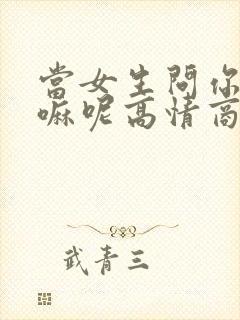 當女生問你
嘛呢高情商
武青三